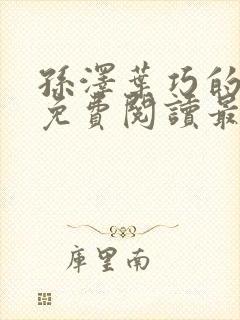 孫澤葉巧的
免費閱讀最
庫里南